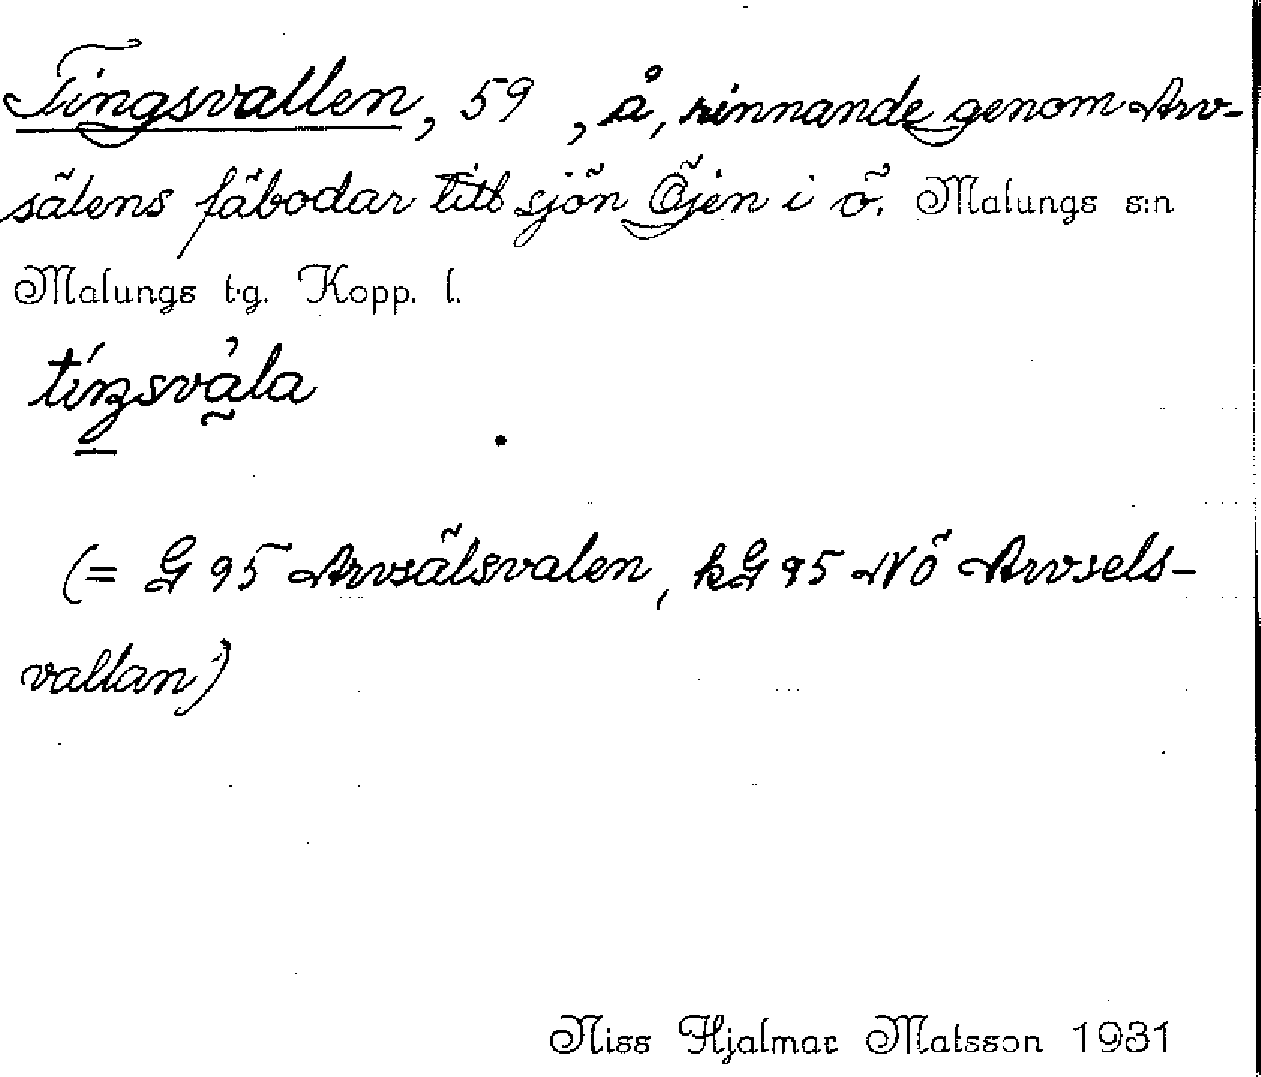 Tingsvallen, 59 , å, rinnande genom Arv-
sälens fäbodar till sjön Öjen i ö. Malungs s:n
Malungs t.g. Kopp. l.
(= G 95 Arvsälsvalen, kG 95 NÖ Arvsels-
vallan)
Niss Hjalmar Matsson 1931